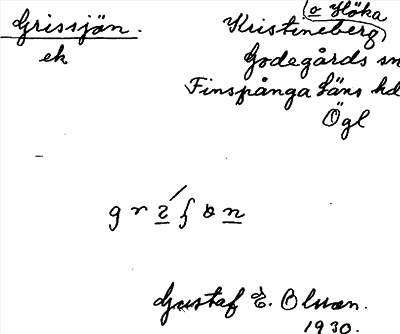 Grissjön.
ek
(o Höka
Kristineberg)
Godegårds sn
Finspånga läns hd
Ögl
Gustaf E. Olson.
1930.